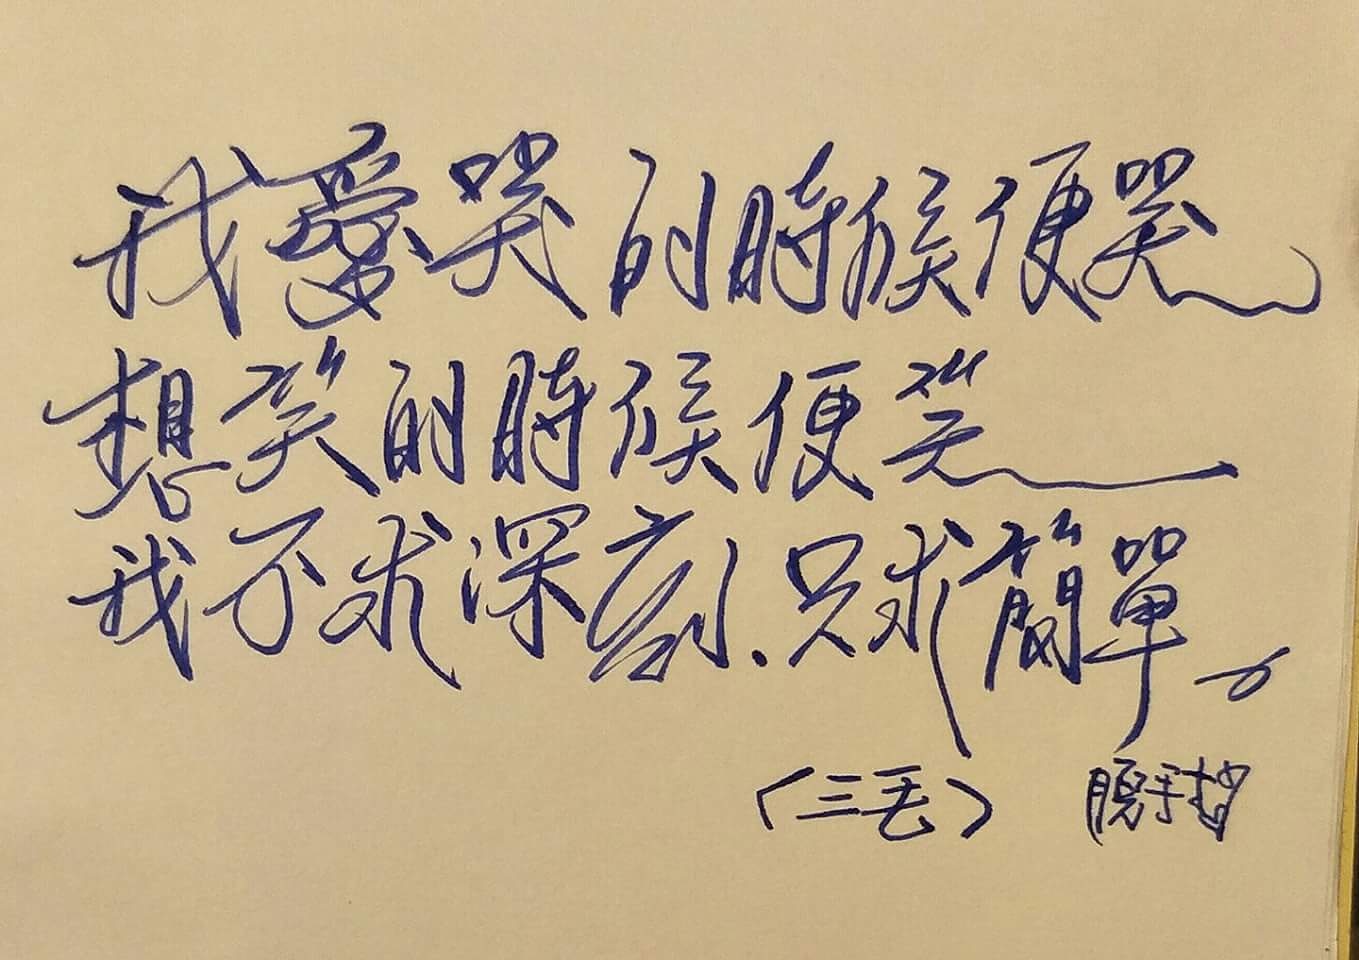 我愛哭的時候便哭
想笑的時候便笑
我不求深刻.只求簡單。
（三毛）